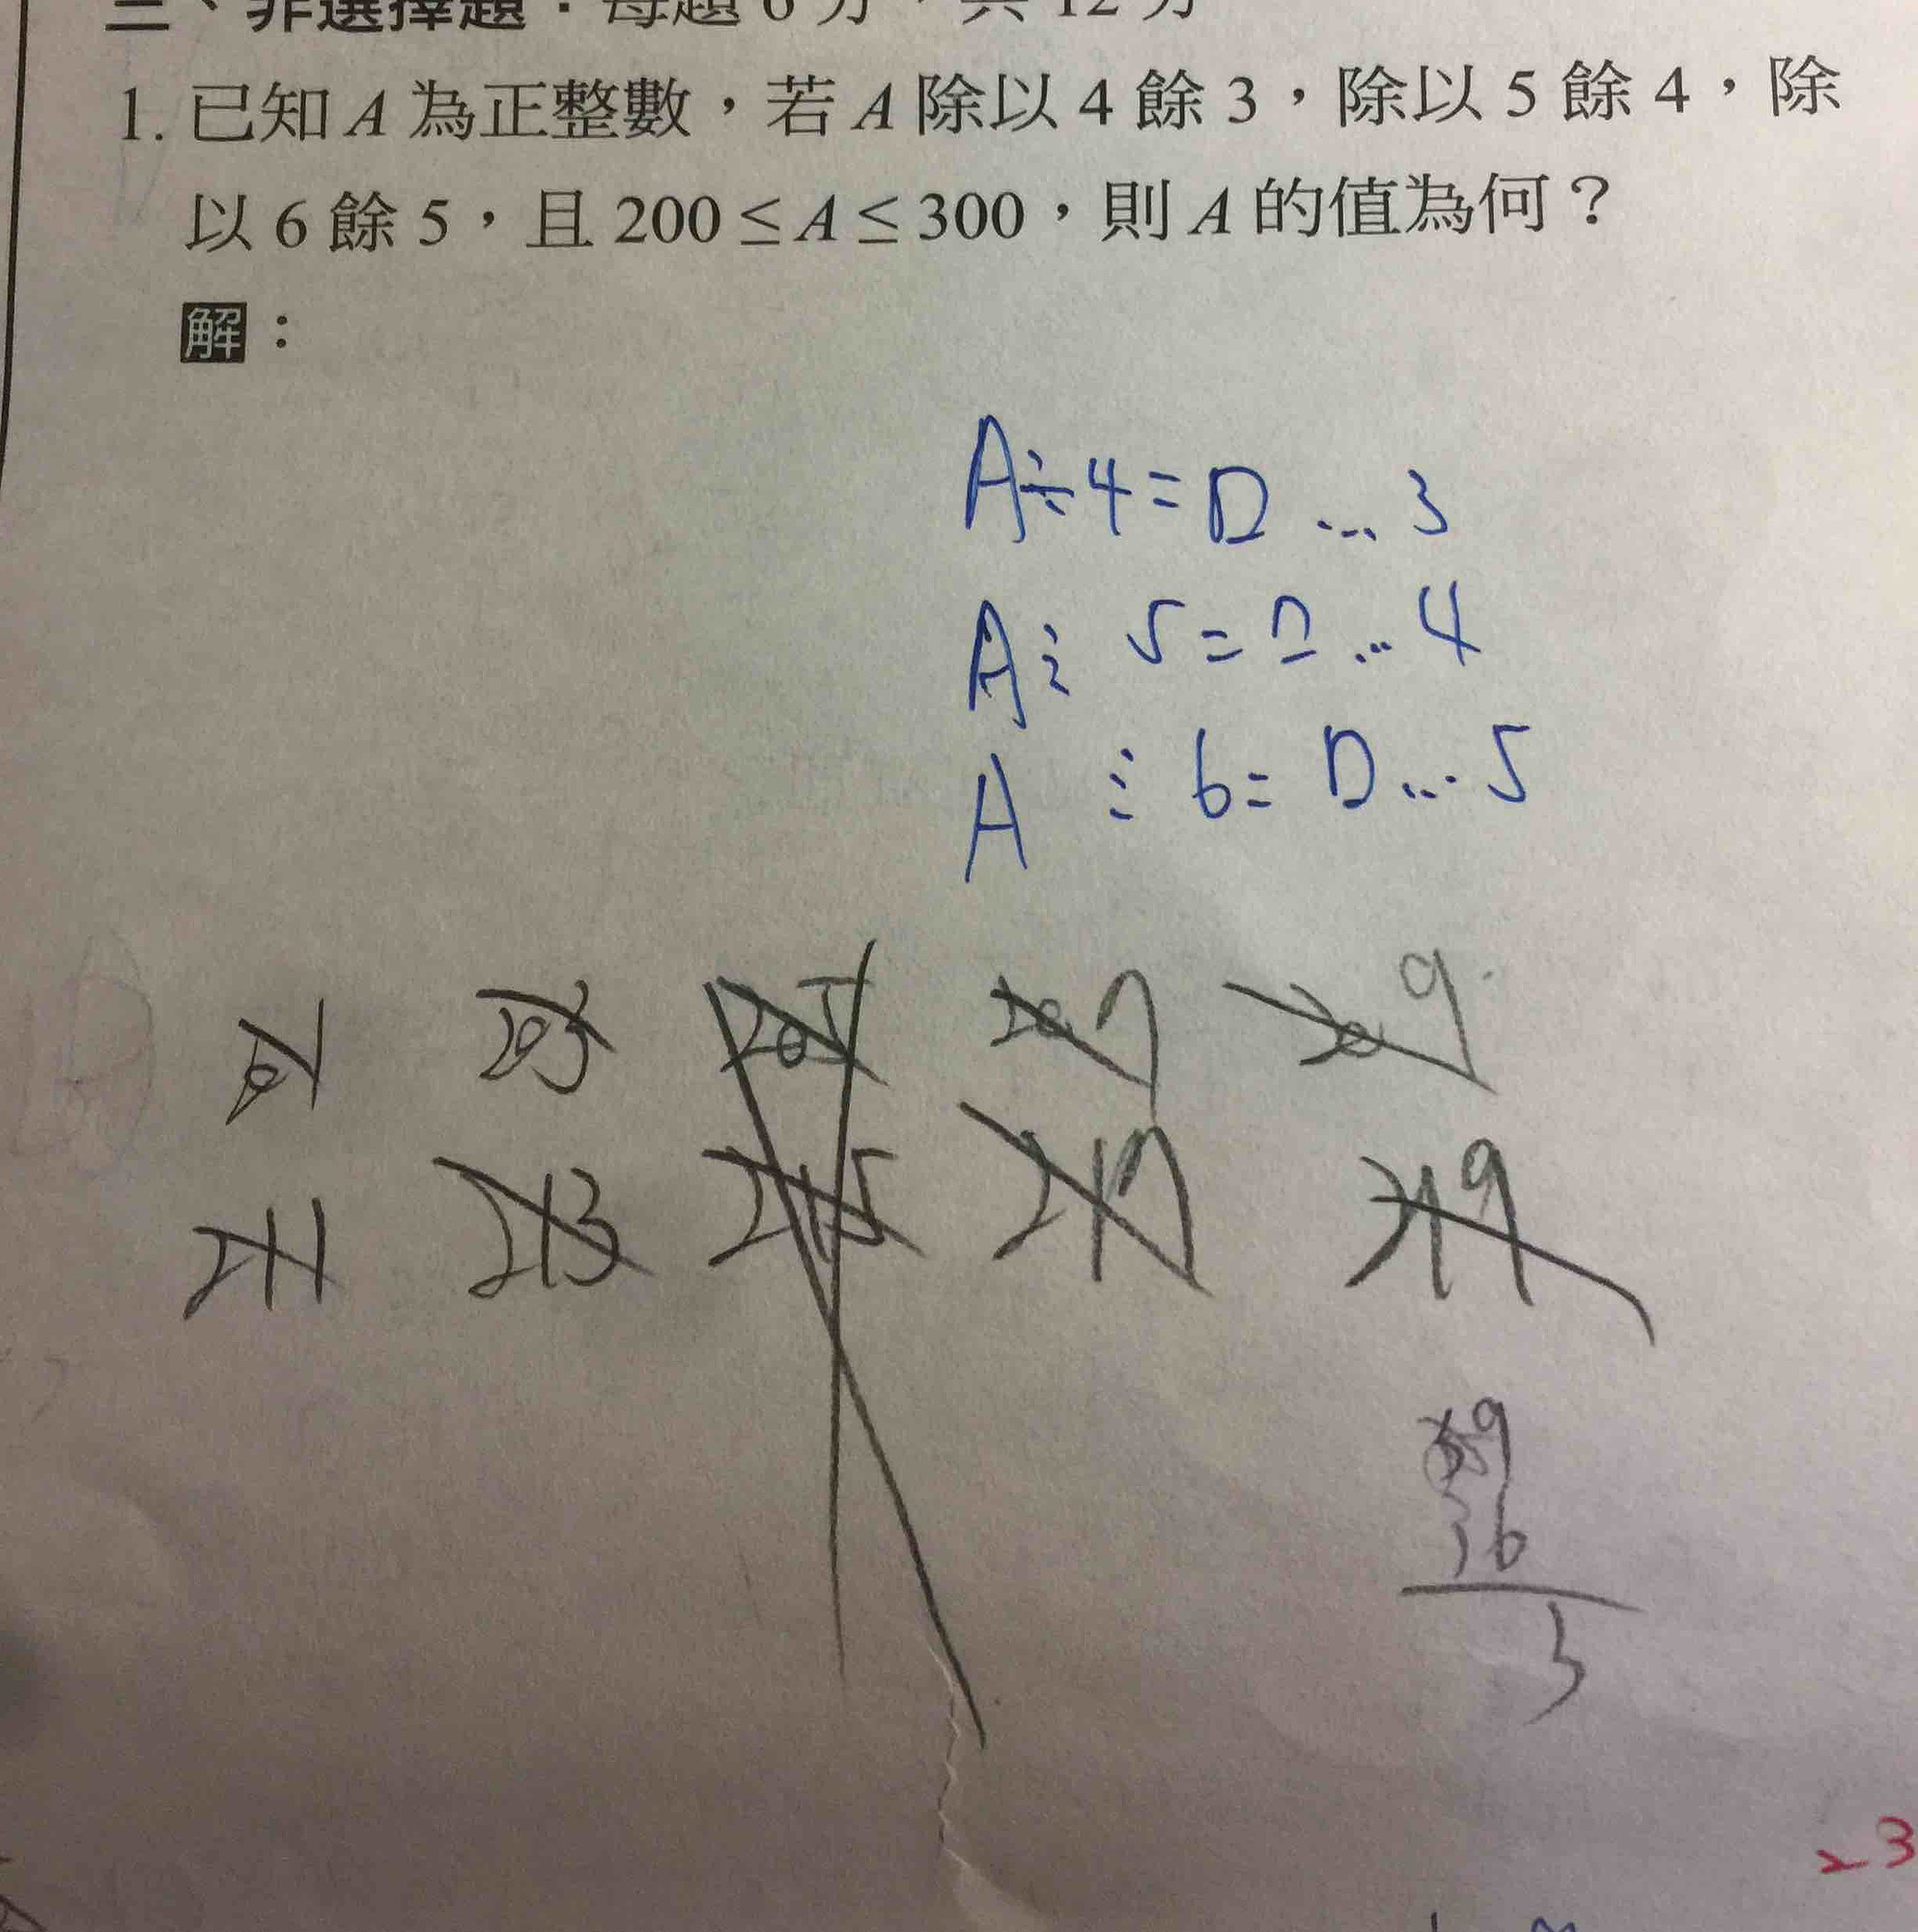 三、非選擇題：每題6分，共12分
1. 已知 A 為正整數，若 A 除以 4 餘 3，除以 5 餘 4，除
以 6 餘 5，且 200 ≤ A ≤ 300，則 A 的值為何？
解：
A÷4=□…3
A÷5=□…4
A÷6=□…5
203 205 207 209
211 213 215 217 219
36
3
23